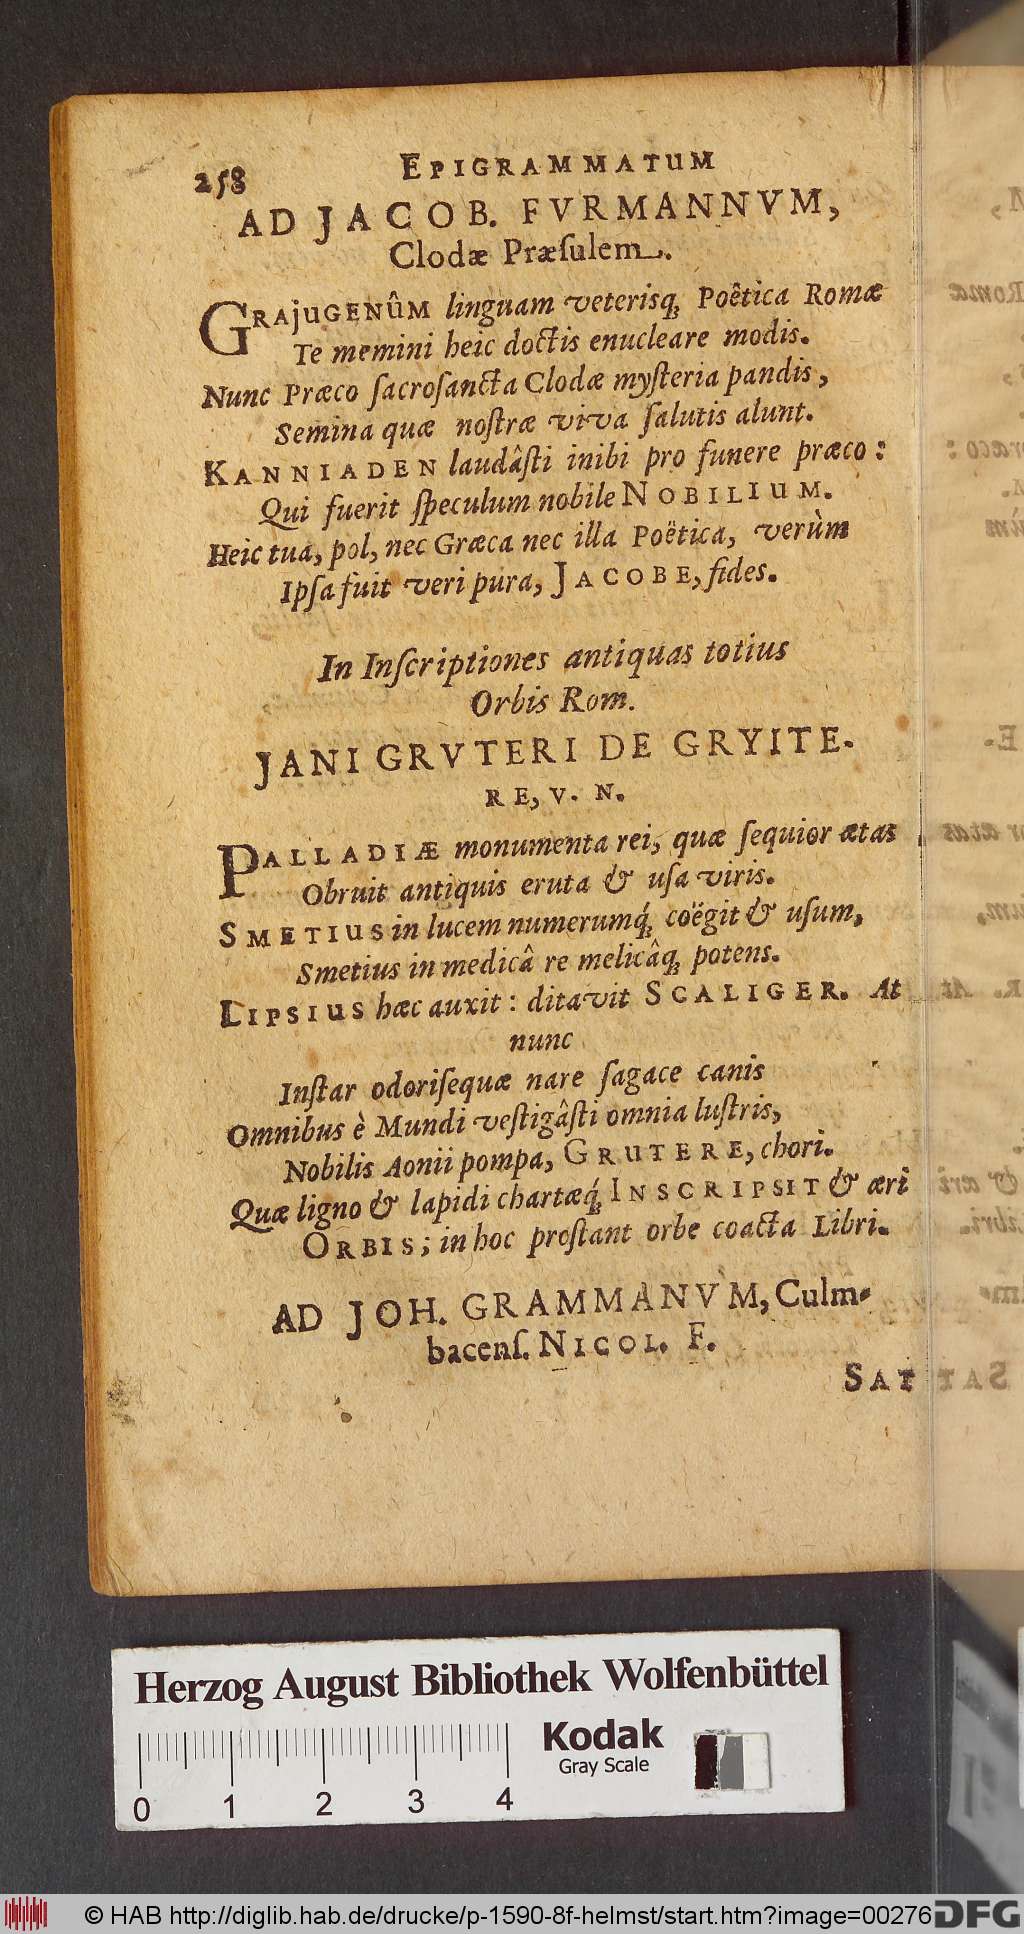 258 EPIGRAMMATUM
AD JACOB. FVRMANNVM,
Clodæ Præſulem.
GRAJUGENÛM linguam veterisq; Poêtica Romæ
Te memini heic doctis enucleare modis.
Nunc Præco ſacroſancta Clodæ myſteria pandis,
Semina quæ noſtræ viva ſalutis alunt.
KANNIADEN laudâſti inibi pro funere præco:
Qui fuerit ſpeculum nobile NOBILIUM.
Heic tua, pol, nec Græca nec illa Poëtica, verùm
Ipſa fuit veri pura, JACOBE, fides.
In Inſcriptiones antiquas totius
Orbis Rom.
JANI GRVTERI DE GRYITE-
RE, V. N.
PALLADIÆ monumenta rei, quæ ſequior ætas
Obruit antiquis eruta & uſa viris.
SMETIUS in lucem numerumq́; coëgit & uſum,
Smetius in medicâ re melicâq; potens.
LIPSIUS hæc auxit: ditavit SCALIGER. At
nunc
Inſtar odoriſequæ nare ſagace canis
Omnibus è Mundi veſtigâſti omnia luſtris,
Nobilis Aonii pompa, GRUTERE, chori.
Quæ ligno & lapidi chartæq́; INSCRIPSIT & æri
ORBIS; in hoc proſtant orbe coacta Libri.
AD JOH. GRAMMANVM, Culm-
bacenſ. NICOL. F.
SAT
Herzog August Bibliothek Wolfenbüttel
Kodak
Gray Scale
0 1 2 3 4
© HAB http://diglib.hab.de/drucke/p-1590-8f-helmst/start.htm?image=00276
DFG